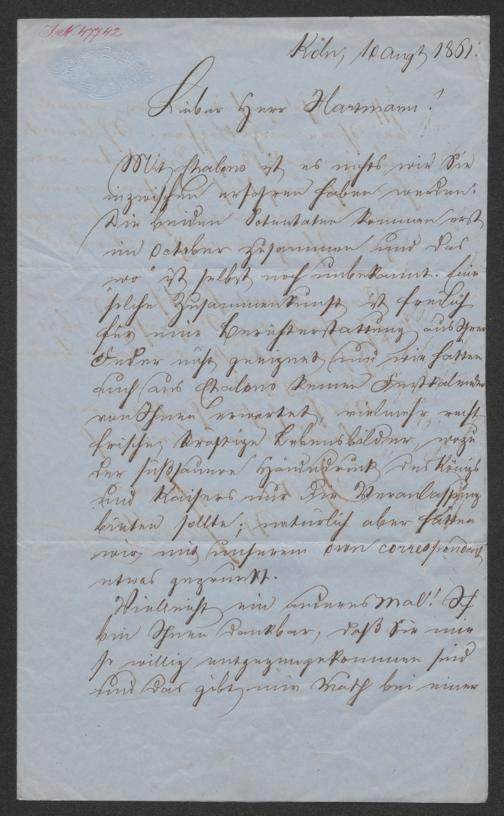 I.N. 47742
Köln, 10 Augt 1861.
Lieber Herr Hartmann!
Mit Chalons ist es nichts, wie Sie
inzwischen erfahren haben werden.
Die beiden Potentaten kommen erst
im October zusammen und das
"wo" ist selbst noch unbekannt. Eine
solche Zusammenkunft ist freilich
für eine Berichterstattung aus Ihrer
Feder nicht geeignet und wir hatten
auch aus Chalons keinen
von Ihnen erwartet, vielmehr recht
frische, kräftige Lebensbilder, wozu
der süßsauere Händedruck des Königs
und Kaisers nur die Veranlassung
bieten sollte; natürlich aber hätten
wir mit unserem own correspondent
etwas geprunkt.
Vielleicht ein anderes Mal! Ich
bin Ihnen dankbar, daß Sie mir
so willig entgegengekommen sind
und das gibt mir Muth bei einer